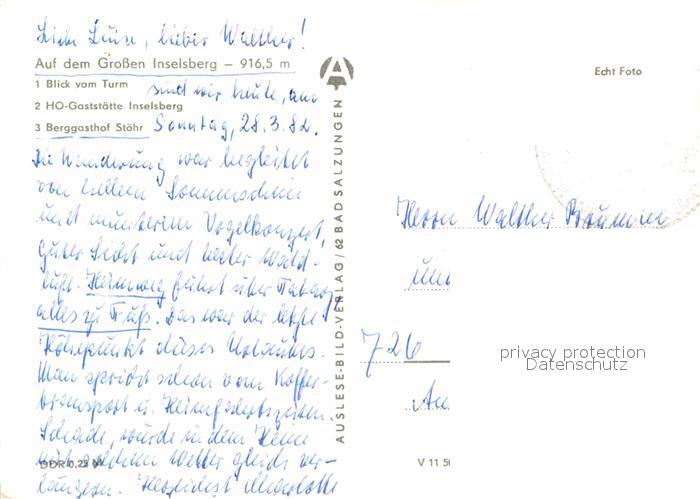 Liebe Luise, lieber Walther!
Auf dem Großen Inselsberg – 916,5 m
1 Blick vom Turm
sind wir heute, am
2 HO-Gaststätte Inselsberg
3 Berggasthof Stöhr
Sonntag, 28.3.82.
Die Wanderung war begleitet
von hellem Sonnenschein
und munterem Vogelkonzert,
guter Sicht und bester Wald-
luft. Heimweg führt über Tabarz,
alles zu Fuß. Das war der letzte
Höhepunkt dieses Urlaubs.
Man spricht schon vom Koffer-
transport u. Heimfahrtszeiten.
Schade, würde in dem Heime
mit schönem Wetter gleich ver-
längern. Herzlichst
DDR 0,25 M
AUSLESE-BILD-VERLAG / 62 BAD SALZUNGEN
Echt Foto
Herrn Walther
und
726
V 11 50
privacy protection
Datenschutz